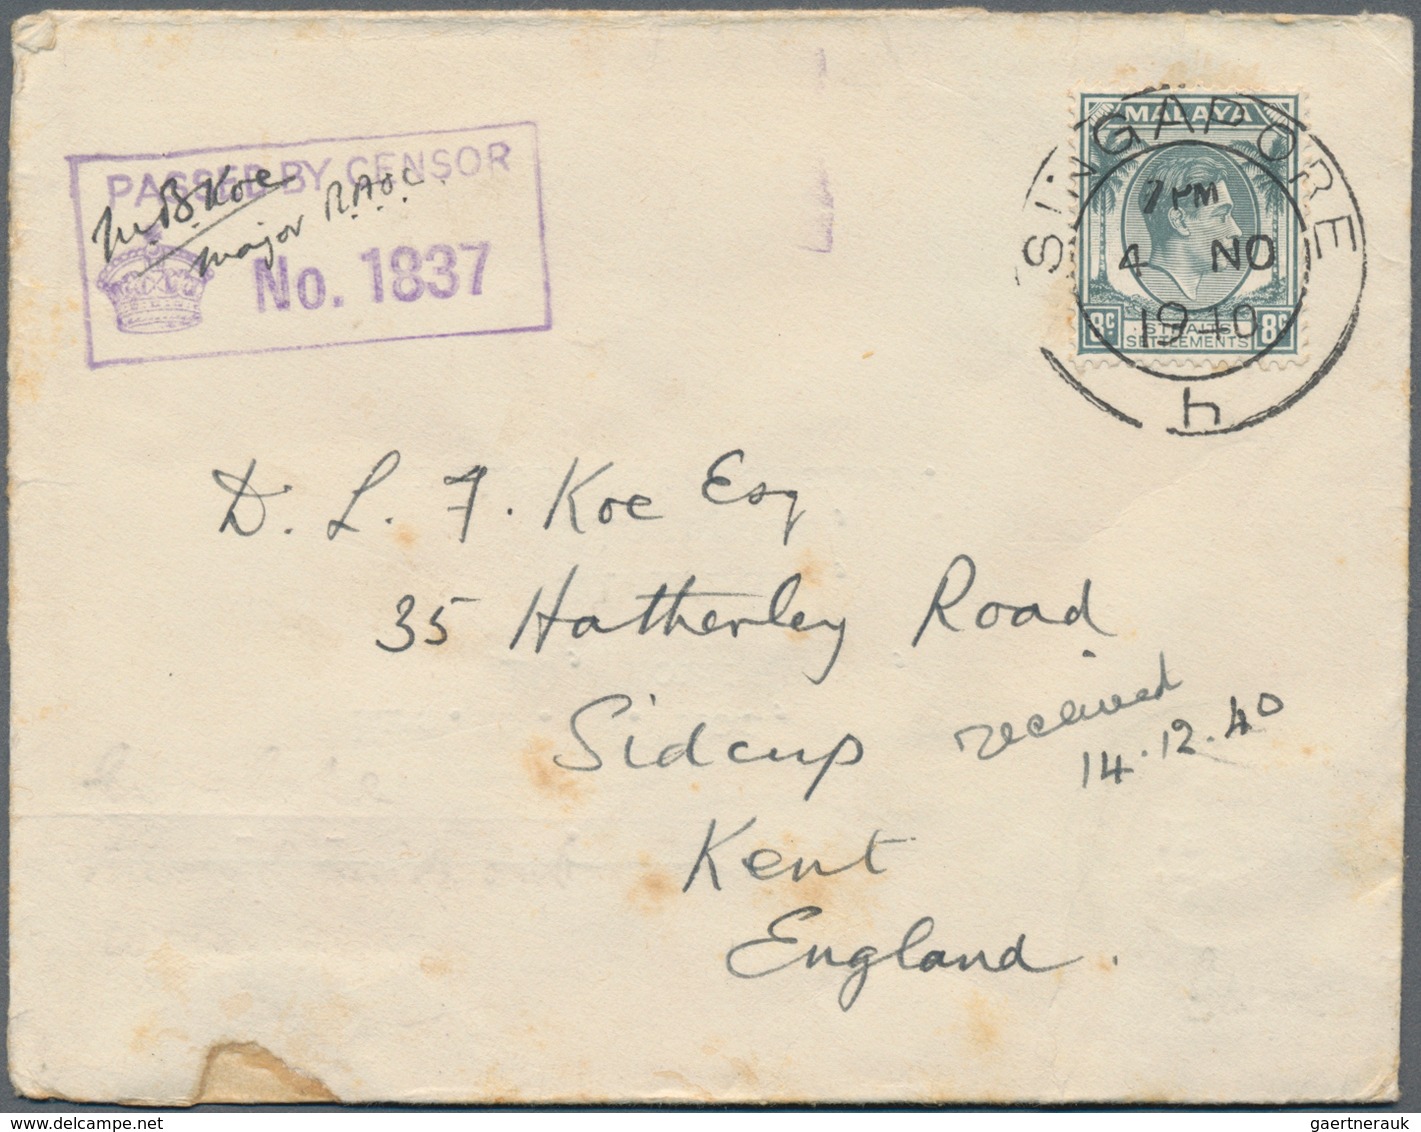 PASSED BY CENSOR
M.B. Koe
Major R.A.O.C.
No. 1837
SINGAPORE
7 PM
4 NO
1940
h
MALAYA
8c STRAITS SETTLEMENTS 8c
D. L. F. Koe Esq
35 Hatherley Road
Sidcup
received
14.12.40
Kent
England.
gaertnerauk @ www.delcampe.net